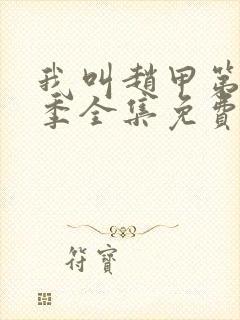 我叫趙甲第
季全集免費
符寶